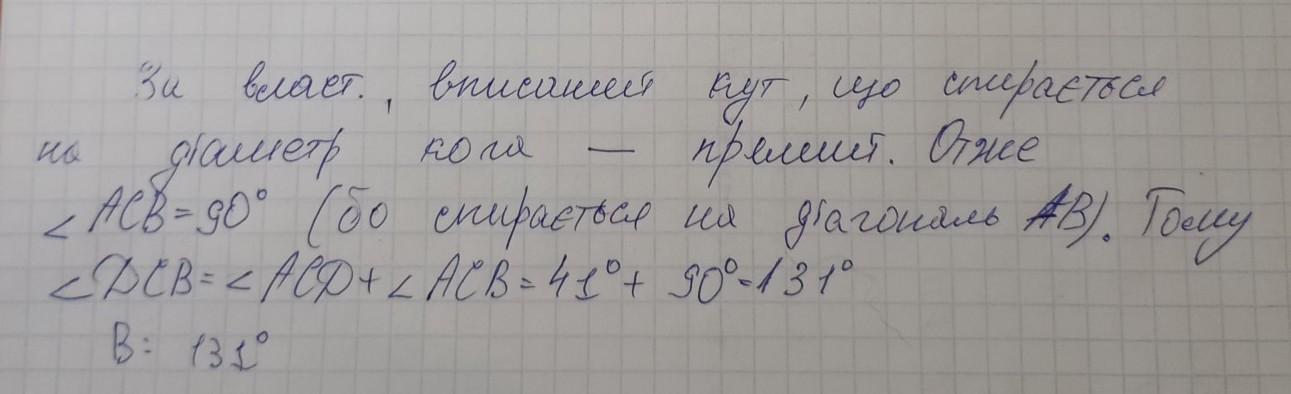 За власт., вписаний кут, що спирається
на діаметр кола — прямий. Отже
∠ACB=90° (бо спирається на діагональ AB). Тому
∠DCB=∠ACD+∠ACB=41°+90°=131°
В: 131°